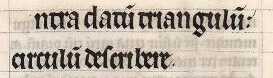 ntra datū triangulū:
circulū describere.